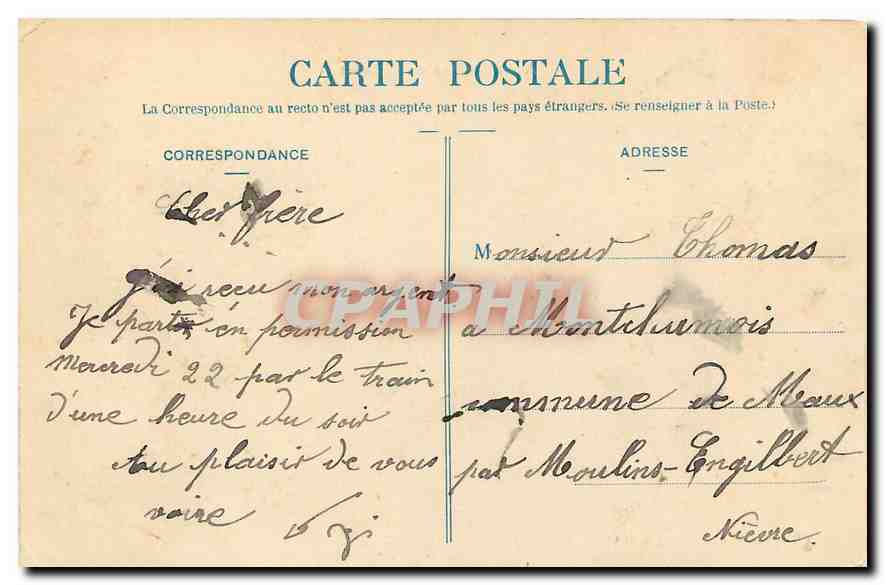 CARTE POSTALE
La Correspondance au recto n'est pas acceptée par tous les pays étrangers. (Se renseigner à la Poste.)
CORRESPONDANCE
Cher frère
j'ai reçu mon argent
Je parts en permission
Mercredi 22 par le train
d'une heure du soir
au plaisir de vous
voire
ADRESSE
Monsieur Thomas
a Montchumois
commune de Maux
par Moulins-Engilbert
Nièvre.
CPAPHIL